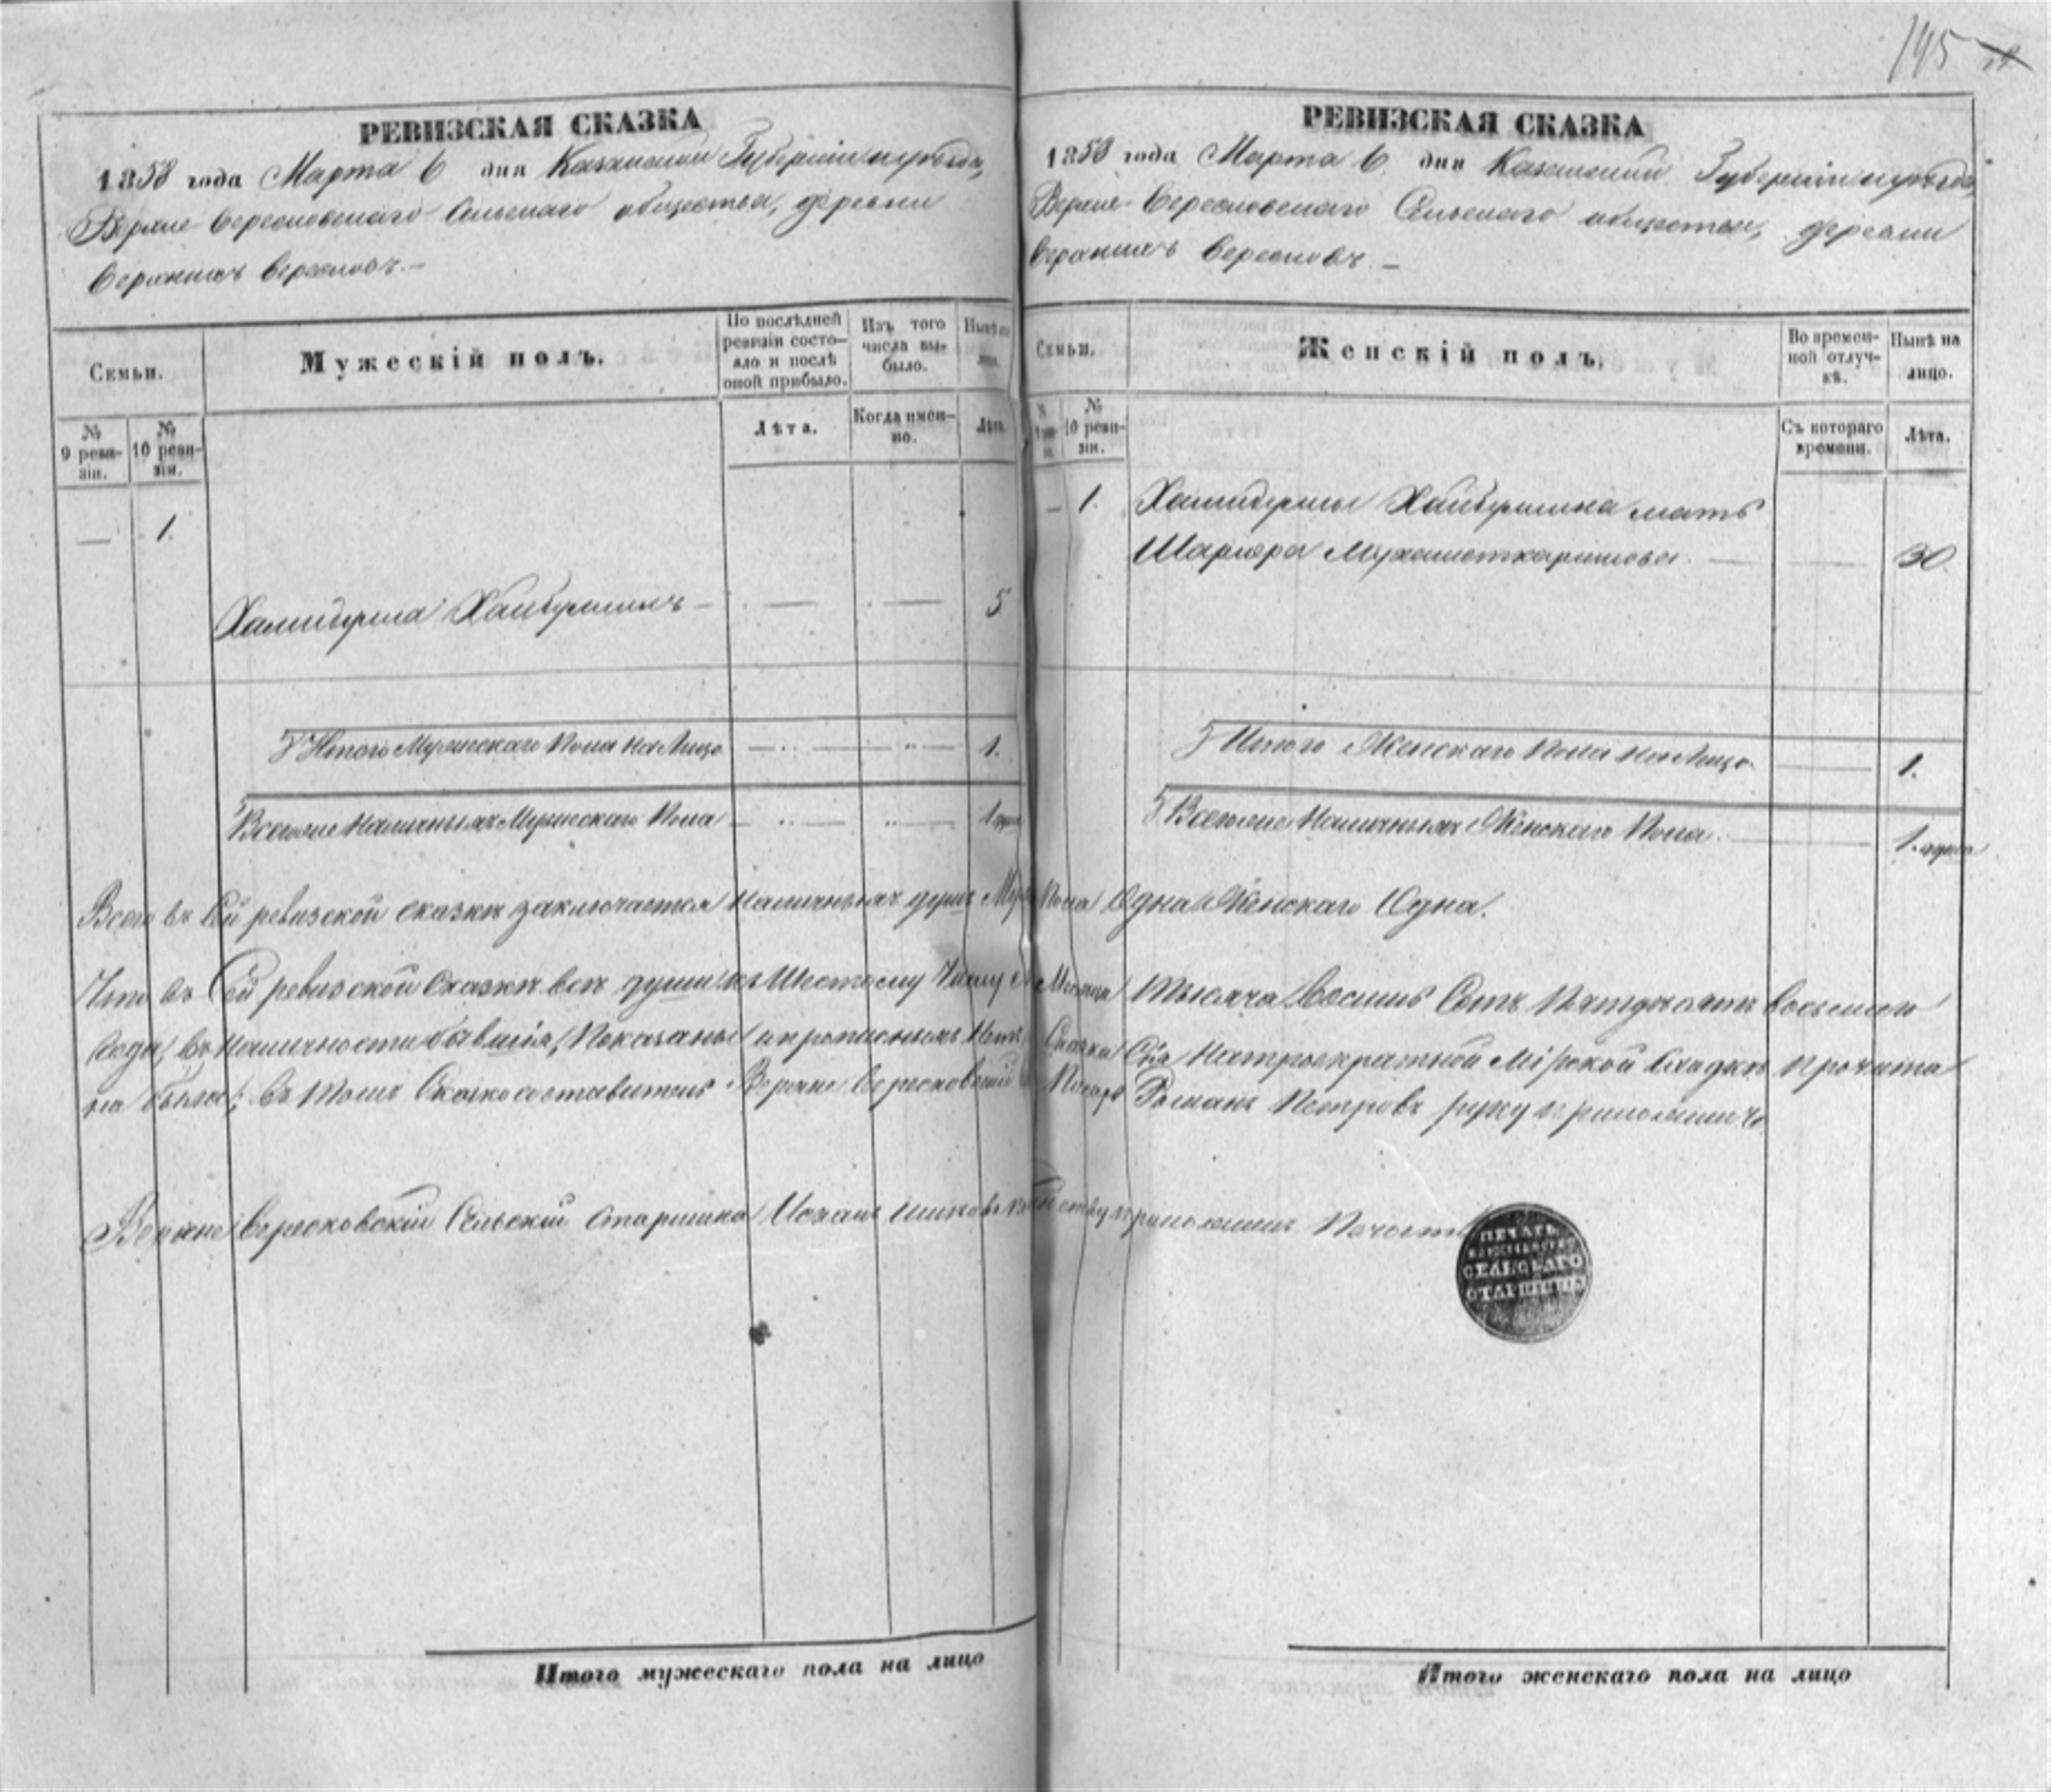 195
РЕВИЗСКАЯ СКАЗКА
1858 года Марта 6 дня Казанской Губерніи и уѣзда,
Верхне Вересковскаго Сельскаго общества, деревни
Верхнихъ Вересковъ.—
Семьи.
Мужескій полъ.
По послѣдней ревизіи состояло и послѣ оной прибыло.
Изъ того числа выбыло.
Нынѣ на лицо.
№ 9 ревизіи.
№ 10 ревизіи.
Лѣта.
Когда именно.
Лѣта.
— 1.
Хамидулла Хайбуллинъ — — — 5
Итого Мужескаго Пола на Лицо — — 1.
Всего Наличныхъ Мужескаго Пола — — 1
РЕВИЗСКАЯ СКАЗКА
1858 года Марта 6 дня Казанской Губерніи и уѣзда,
Верхне Вересковскаго Сельскаго общества, деревни
Верхнихъ Вересковъ.—
Семьи.
Женскій полъ.
Во временной отлучкѣ.
Нынѣ на лицо.
№
№ 10 ревизіи.
Съ котораго времени.
Лѣта.
— 1. Хамидуллы Хайбуллина мать
Мухаметкаримова. — — 30
Итого Женскаго Пола на Лицо — 1.
Наличныхъ Женскаго Пола. — 1. одна
Всего въ Сей ревизской сказкѣ заключается наличныхъ душъ Муж Пола Одна Женскаго Одна.
Что въ Сей ревизской Сказкѣ всѣ души къ Шестому Числу Тысяча Восемь Сотъ Пятдесятъ восьмаго
Года, въ наличности бывшія, Показаны и прописныхъ Нетъ, Сказка Сія На троекратной Мірской Сходкѣ прочита
на была; въ томъ Сказкосоставитель Верхне Вересковскій Писарь Романъ Петровъ руку приложилъ
Верхне Вересковскій Сельскій Старшина приложилъ Печать
ПЕЧАТЬ
СЕЛЬСКАГО
СТАРШИНЫ
Итого мужескаго пола на лицо
Итого женскаго пола на лицо